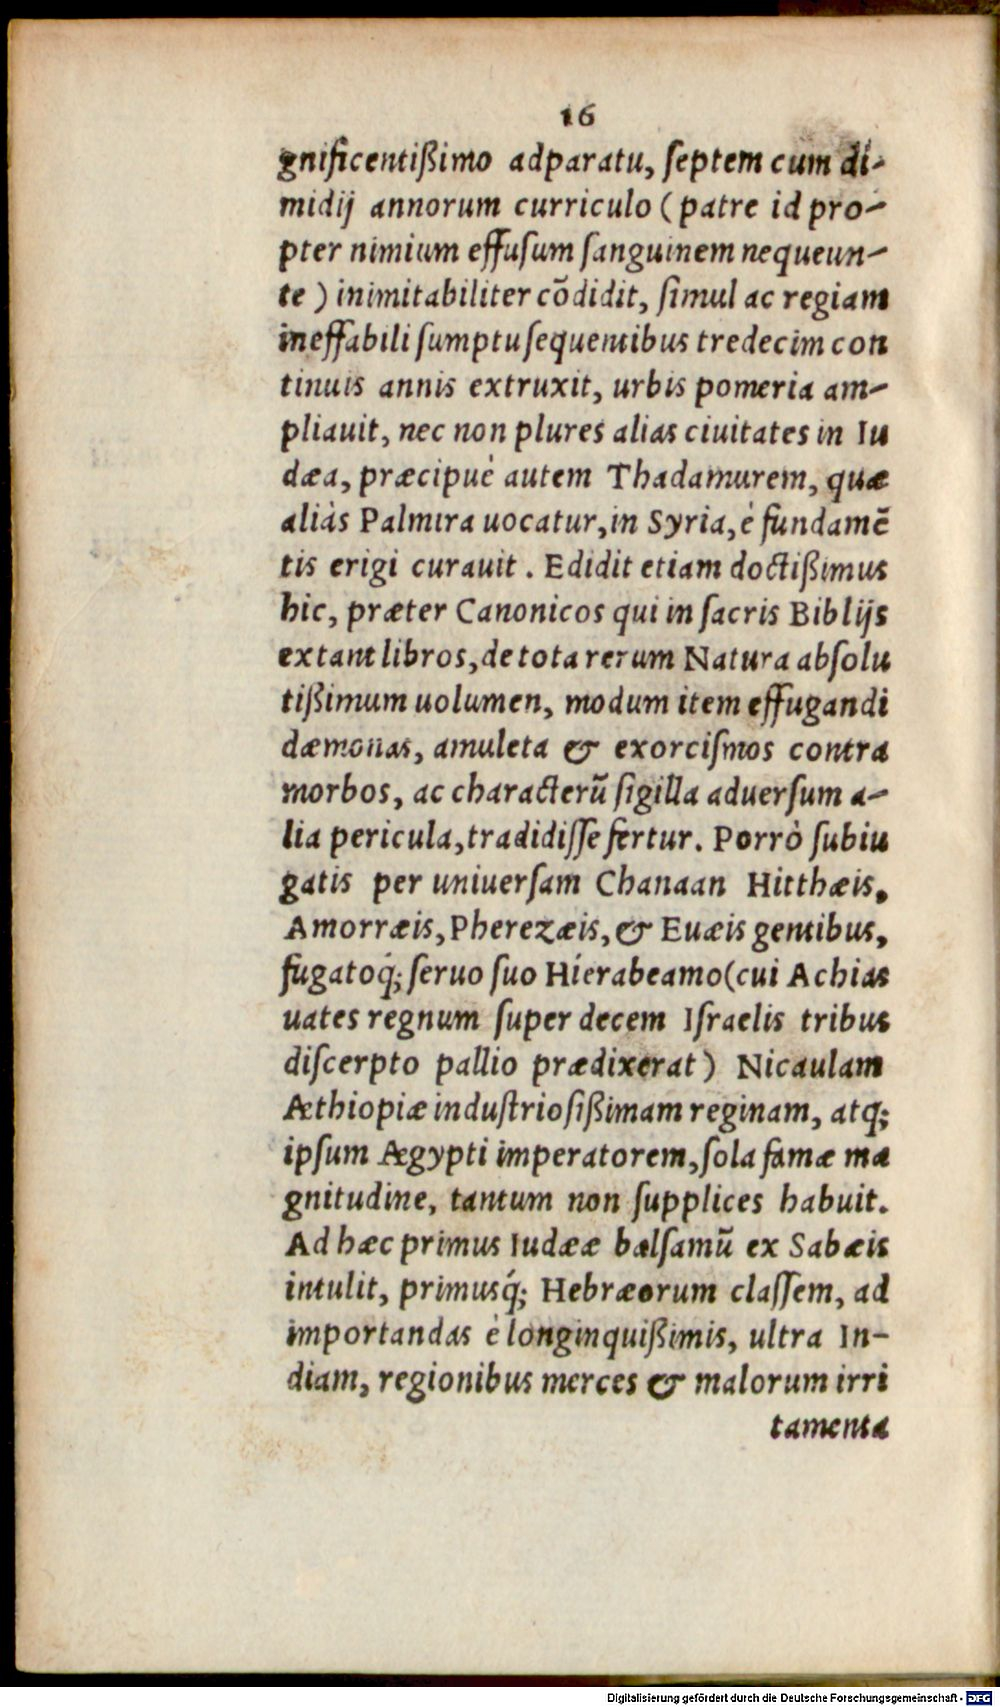 16
gnificentißimo adparatu, ſeptem cum di-
midij annorum curriculo (patre id pro-
pter nimium effuſum ſanguinem nequeun-
te) inimitabiliter cōdidit, ſimul ac regiam
ineffabili ſumptu ſequentibus tredecim con
tinuis annis extruxit, urbis pomeria am-
pliauit, nec non plures alias ciuitates in Iu
dæa, præcipuè autem Thadamurem, quæ
aliàs Palmira uocatur, in Syria, è fundamē
tis erigi curauit. Edidit etiam doctißimus
hic, præter Canonicos qui in ſacris Biblijs
extant libros, de tota rerum Natura abſolu
tißimum uolumen, modum item effugandi
dæmonas, amuleta & exorciſmos contra
morbos, ac characterū ſigilla aduerſum a-
lia pericula, tradidiſſe fertur. Porrò ſubiu
gatis per uniuerſam Chanaan Hitthæis,
Amorræis, Pherezæis, & Euæis gentibus,
fugatoq́; ſeruo ſuo Hierabeamo (cui Achias
uates regnum ſuper decem Iſraelis tribus
diſcerpto pallio prædixerat) Nicaulam
Æthiopiæ induſtrioſißimam reginam, atq;
ipſum Ægypti imperatorem, ſola famæ ma
gnitudine, tantum non ſupplices habuit.
Ad hæc primus Iudææ balſamū ex Sabæis
intulit, primusq́; Hebræorum claſſem, ad
importandas è longinquißimis, ultra In-
diam, regionibus merces & malorum irri
tamenta
Digitalisierung gefördert durch die Deutsche Forschungsgemeinschaft - DFG